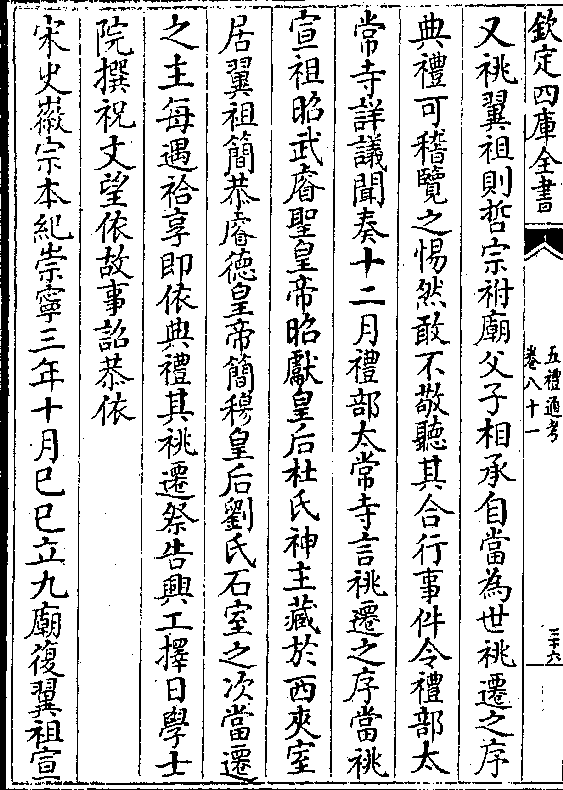 欽定四庫全書
五禮通考
卷八十一
三十六
又祧翼祖則哲宗祔廟父子相承自當為世祧遷之序
典禮可稽覽之惕然敢不敬聽其合行事件令禮部太
常寺詳議聞奏十二月禮部太常寺言祧遷之序當祧
宣祖昭武睿聖皇帝昭獻皇后杜氏神主藏於西夾室
居翼祖簡恭睿德皇帝簡穆皇后劉氏石室之次當遷
之主每遇祫享即依典禮其祧遷祭告興工擇日學士
院撰祝文望依故事詔恭依
宋史徽宗本紀崇寧三年十月己巳立九廟復翼祖宣